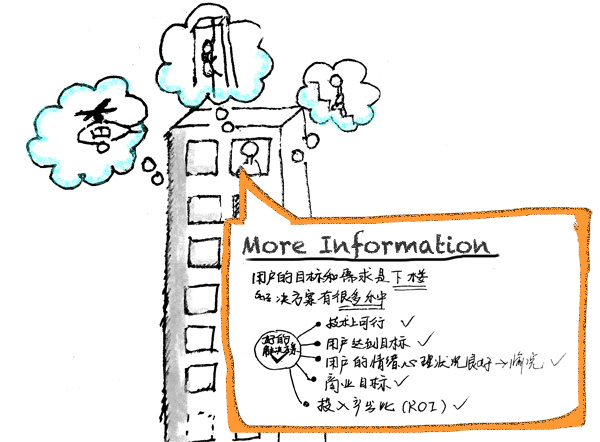 More Information
用户的目标和需求是下楼
解决方案有很多种
好的
解决方案
技术上可行 ✓
用户达到目标 ✓
用户的情绪心理状况良好→愉悦 ✓
商业目标 ✓
投入产出比 (ROI) ✓